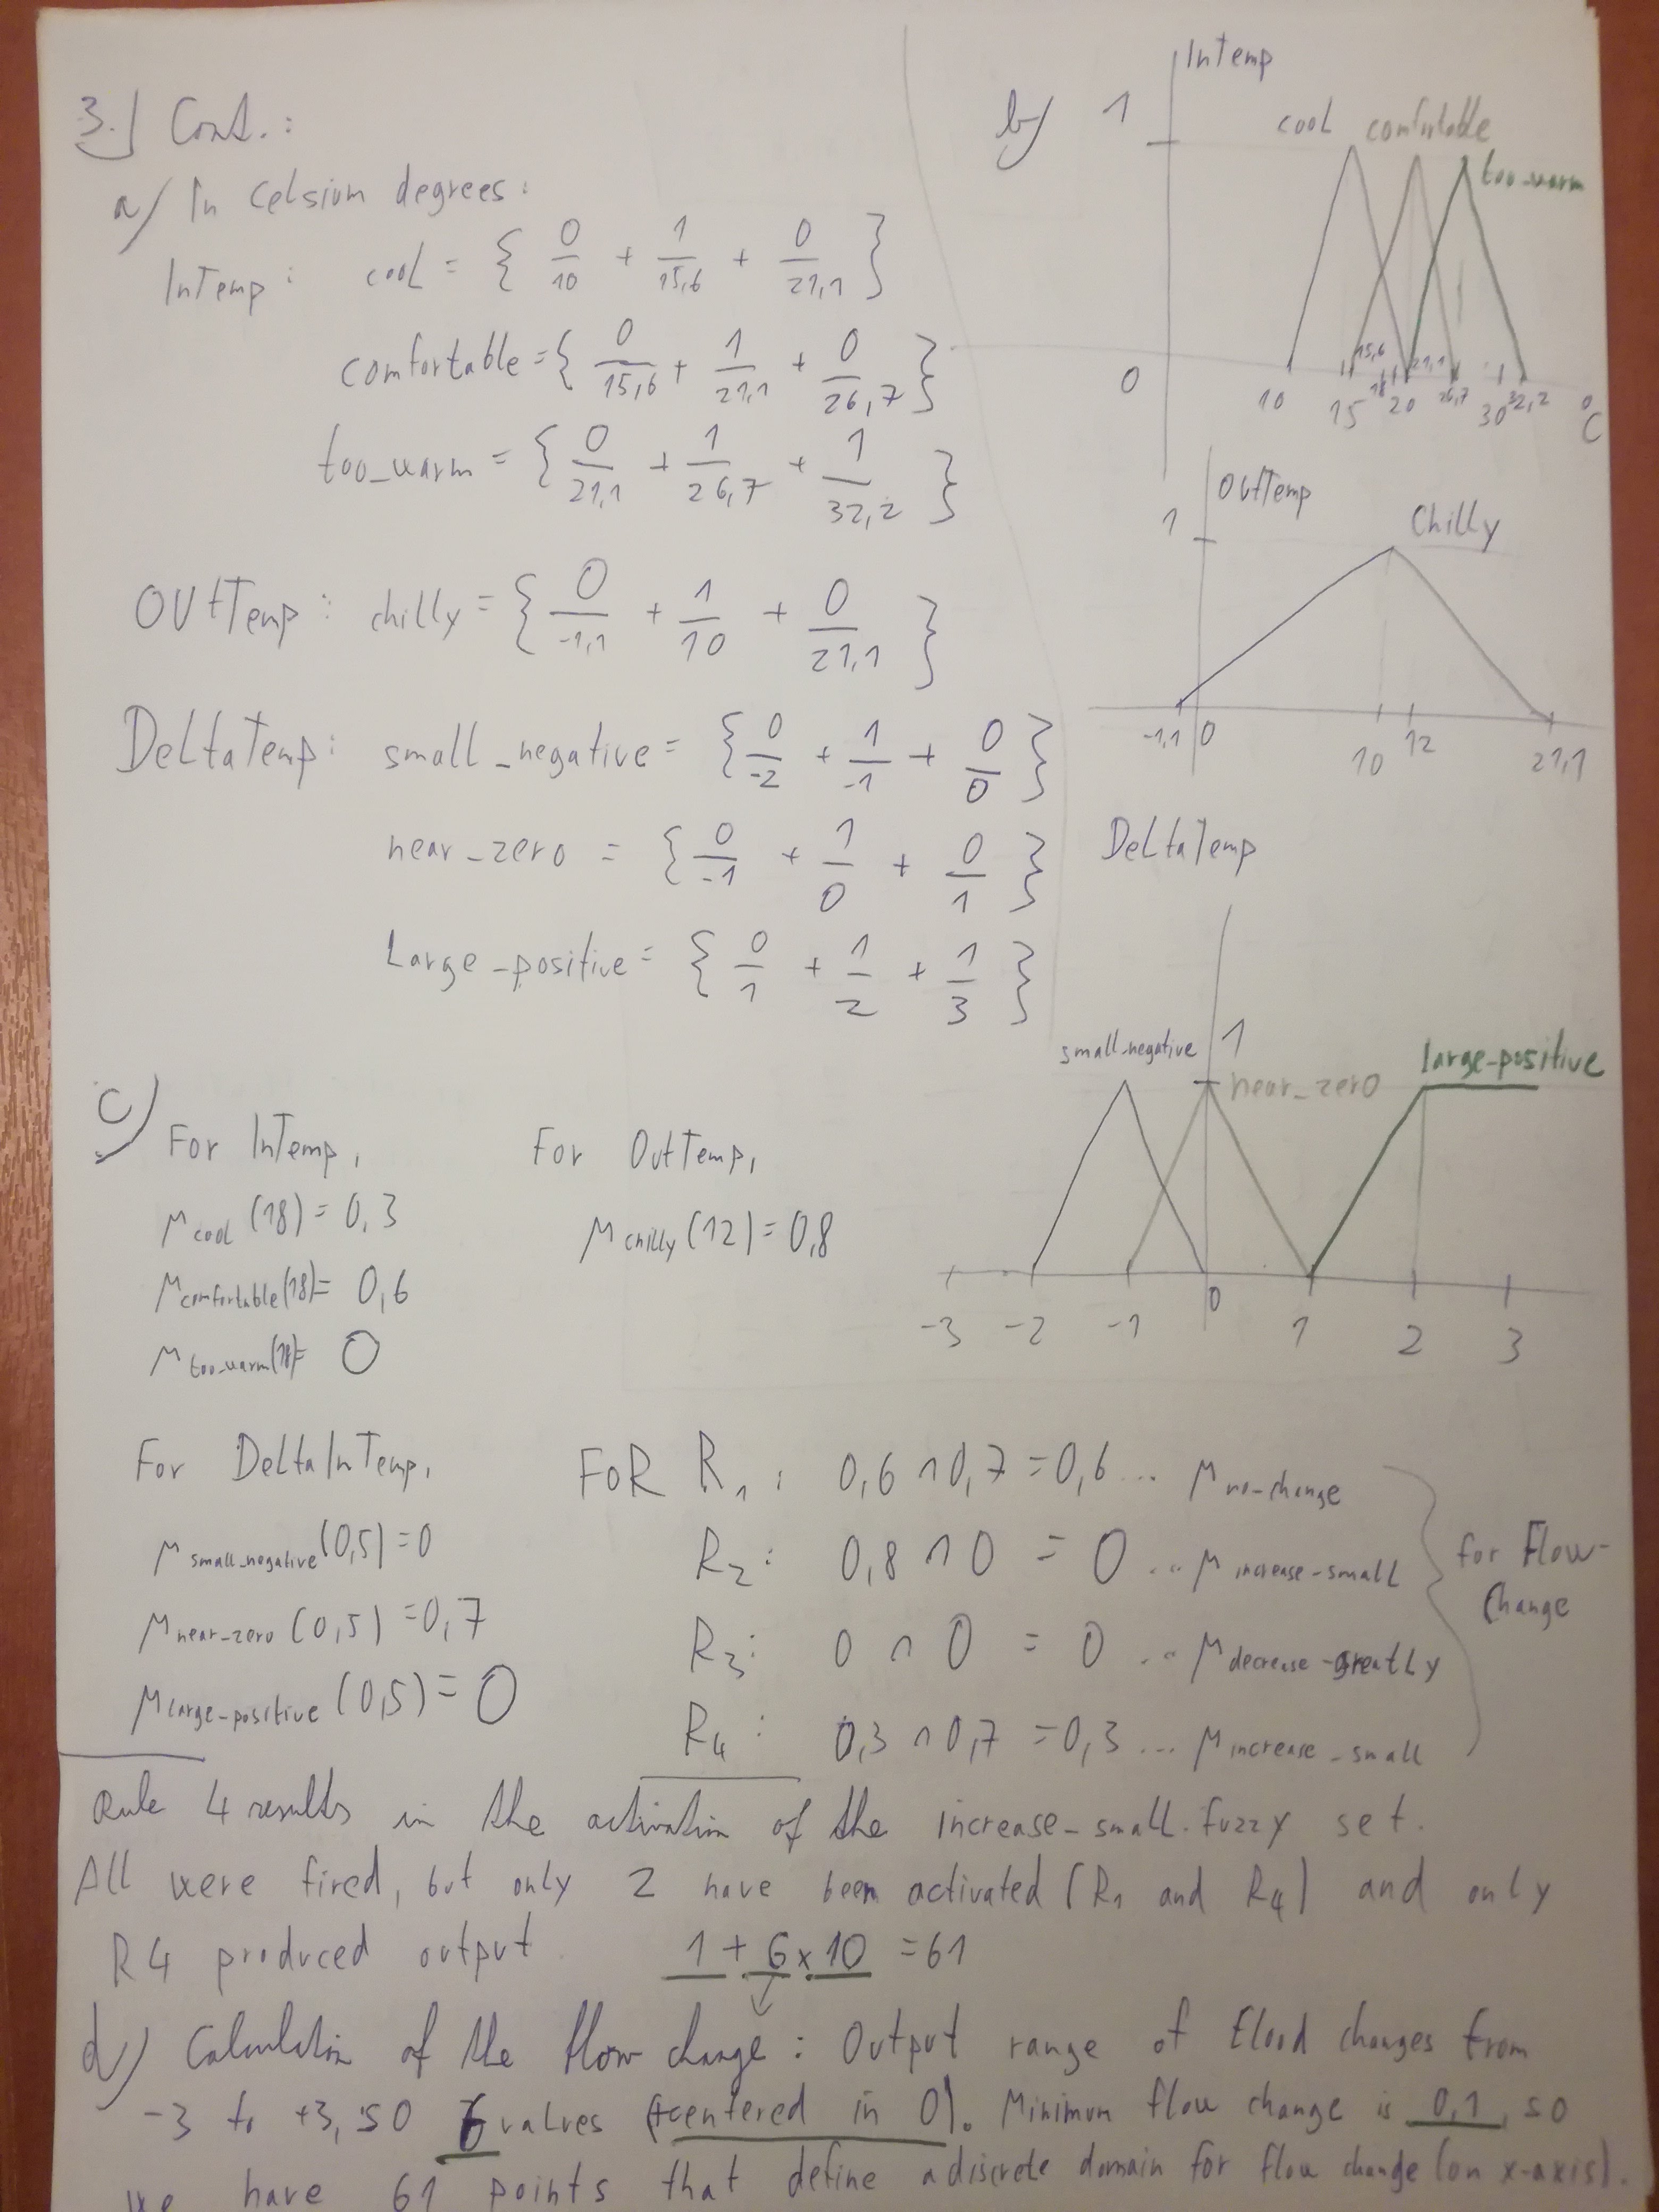 3.) Cont.:
a) In Celsium degrees:
InTemp: cool = { 0/10 + 1/15,6 + 0/21,1 }
comfortable = { 0/15,6 + 1/21,1 + 0/26,7 }
too_warm = { 0/21,1 + 1/26,7 + 1/32,2 }
OUtTemp: chilly = { 0/-1,1 + 1/10 + 0/21,1 }
DeltaTemp: small_negative = { 0/-2 + 1/-1 + 0/0 }
near_zero = { 0/-1 + 1/0 + 0/1 }
Large_positive = { 0/1 + 1/2 + 1/3 }
b) InTemp
1
cool comfortable
too_warm
0
15,6 18 21,1 26,7 32,2
10 15 20 30 °C
OUtTemp
1 Chilly
-1,1 0 10 12 21,1
DeltaTemp
small_negative 1 large-positive
near_zero
-3 -2 -1 0 1 2 3
c) For InTemp,
μcool (18) = 0,3
μcomfortable(18)= 0,6
μtoo_warm(18)= 0
For OutTemp,
μchilly(12)=0,8
For DeltaInTemp,
μsmall_negative(0,5)=0
μnear-zero (0,5) =0,7
μlarge-positive (0,5)= 0
FOR R1: 0,6 ∩ 0,7 = 0,6... μno-change
R2: 0,8 ∩ 0 = 0 ... μincrease-small
R3: 0 ∩ 0 = 0 ... μdecrease-greatly
R4: 0,3 ∩ 0,7 = 0,3 ... μincrease_small
for Flow-
Change
Rule 4 results in the activation of the increase_small fuzzy set.
All were fired, but only 2 have been activated (R1 and R4) and only
R4 produced output 1 + 6 x 10 = 61
d) Calculation of the flow change: Output range of Flood changes from
-3 to +3, so 6 values (centered in 0). Minimum flow change is 0,1, so
we have 61 points that define a discrete domain for flow change (on x-axis).